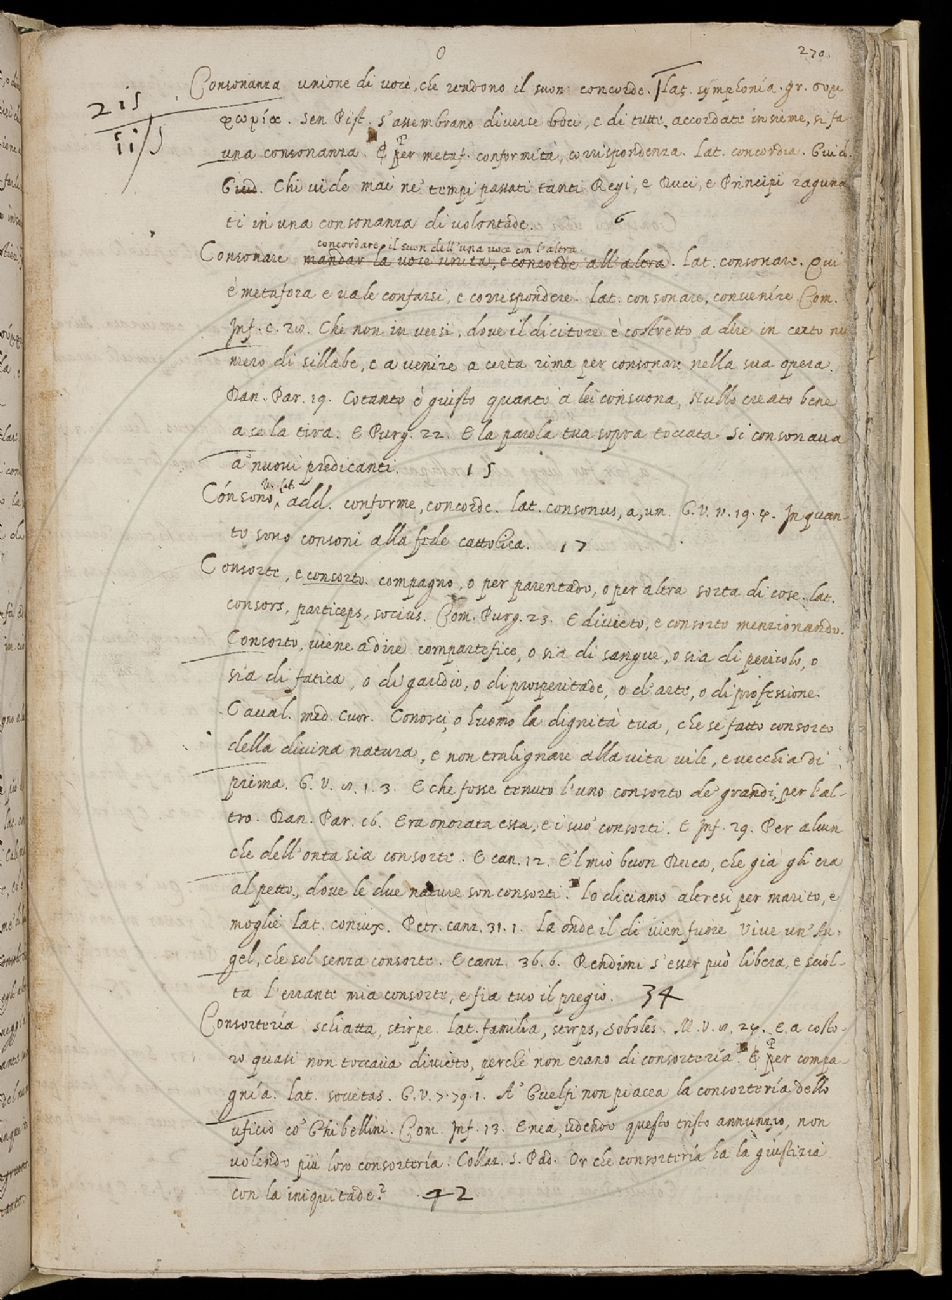 O 270
Consonanza unione di voci, che rendono il suon concorde. Lat. symphonía. gr. συμ
φωνία. Sen. Pist. S'assembrano diverse boci, e di tutte, accordate insieme, si fa
2 15
11/5
una consonanza. ¶ per metaf. conformità, corrispondenza. Lat. concordia. Guid.
Giud. Chi vide mai ne' tempi passati tanti Regi, e Duci, e Principi raguna
ti in una consonanza di volontade. 6
concordare il suon dell'una voce con l'altra
Consonare mandar la voce unita, e concorde all'altra. Lat. consonare. Qui
è metafora e vale confarsi, e corrispondere. Lat. consonare, convenire. Com.
Inf. c. 20. Che non in versi, dove il dicitore è costretto a dire in certo nu
mero di sillabe, e a venire a certa rima per consonare nella sua opera.
Dan. Par. 19. Cotanto è giusto quanto a lei consuona, Nullo creato bene
a se la tira. E Purg. 22. E la parola tua sopra toccata Si consonava
a' nuovi predicanti. 15
v. lat.
Cónsono, add. conforme, concorde. Lat. consonus, a, um. G. V. 11. 19. 4. In quan
to sono consoni alla fede cattolica. 17
Consorte, e consorto. compagno, o per parentado, o per altra sorta di cose. lat.
consors, particeps, socius. Com. Purg. 23. E divieto, e consorto menzionando.
Consorto, viene a dire compartefice, o sia di sangue, o sia di pericolo, o
sia di fatica, o di gaudio, o di prosperitade, o d'arte, o di professione.
Caval. med. cuor. Conosci, o huomo la dignità tua, che se fatto consorto
della divina natura, e non tralignare alla vita vile, e vecchia di
prima. G. V. 1. 3. E che fosse tenuto l'uno consorto de' grandi, per l'al-
tro. Dan. Par. 16. Era onorata essa, e i suo' consorti. E Inf. 29. Per alcun
che dell'onta sia consorte. E can. 12. E'l mio buon Duca, che già gli era
al petto, dove le due nature son consorti. Lo diciamo altresi per marito, e
moglie Lat. coniux. Petr. canz. 31. 1. Là onde il dì vien fuore Vive un' Au-
gel, che sol senza consorte. E canz. 36. 6. Rendimi s'esser può libera, e sciol-
ta L'errante mia consorte, e fia tuo il pregio. 34
Consortería. schiatta, stirpe. Lat. familia, stirps, soboles. M. V. 24. E a costo-
ro quasi non toccava divieto, perchè non erano di consortería. ¶ per compa
gnía. Lat. societas. G. V. 7. 79. 1. A' Guelfi non piacea la consortería dello
uficio co' Ghibellini. Com. Inf. 13. Enea, udendo questo tristo annunzio, non
volendo più loro consortería. Collaz. S. Pad. Or che consortería ha la giustizia
con la iniquitade? 42